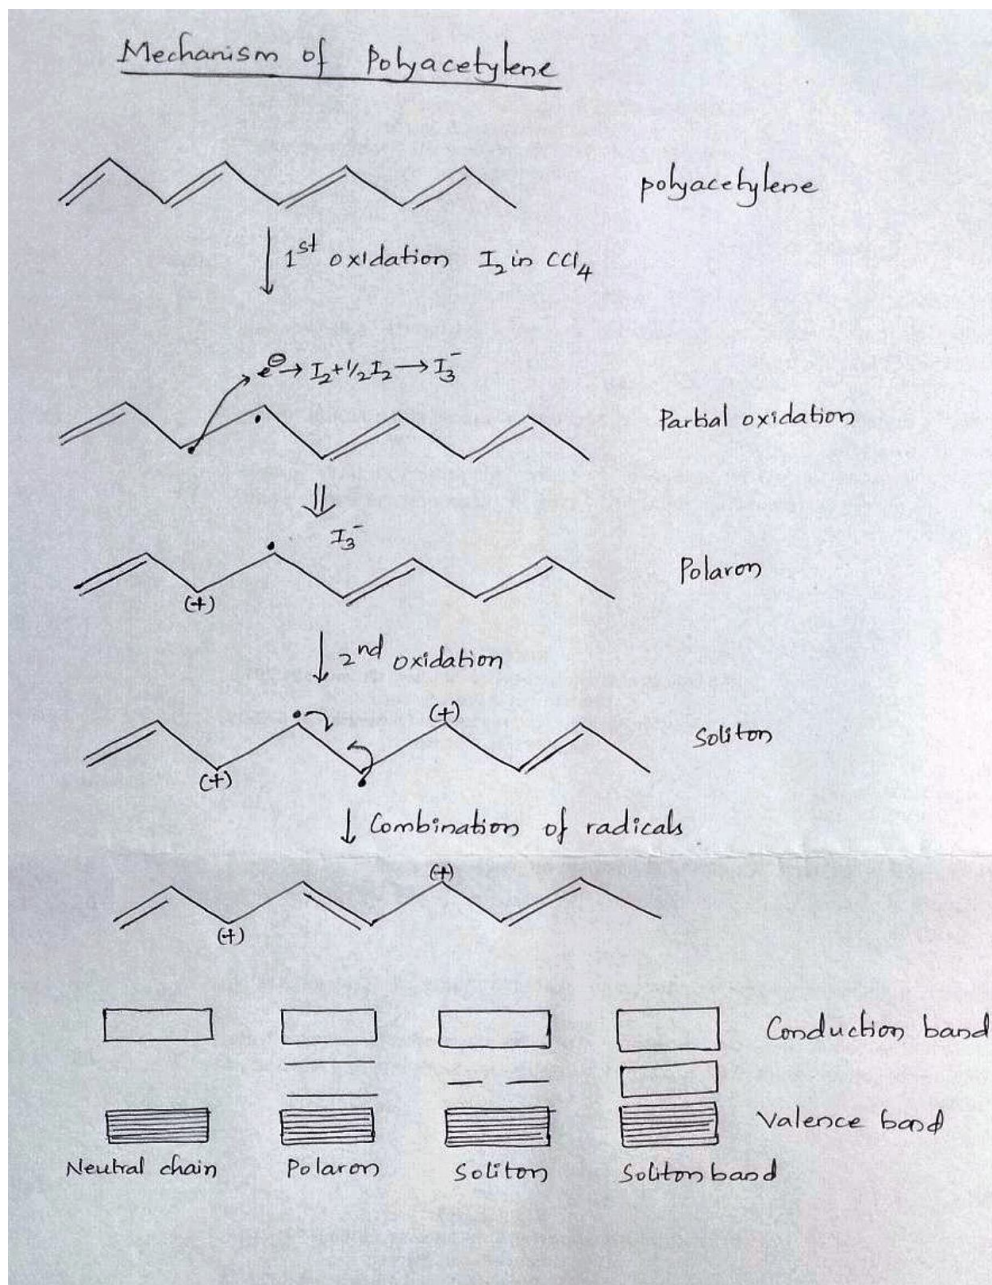 Mechanism of Polyacetylene
polyacetylene
1st oxidation I2 in CCl4
e⊖ → I2+1/2I2 → I3-
Partial oxidation
I3-
Polaron
(+)
2nd oxidation
(+)
Soliton
(+)
Combination of radicals
(+)
(+)
Conduction band
Valence band
Neutral chain Polaron Soliton Soliton band